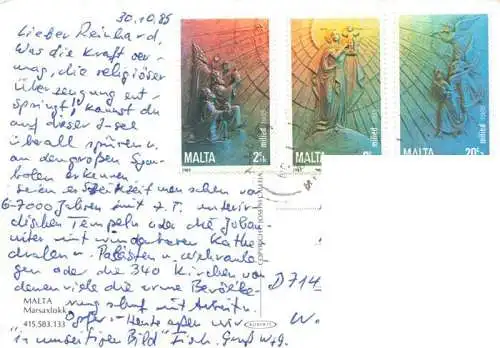 30.10.85
Lieber Reinhard,
Was die Kraft ver-
mag, die religiöser
Überzeugung ent-
springt, kannst du
auf dieser Insel
überall spüren u.
an den großen Sym-
bolen erkennen,
seien es Steinzeitmenschen vor
6-7000 Jahren mit z.T. unterir-
dischen Tempeln oder die Johan-
niter mit wunderbaren Kathe-
dralen u. Palästen u. Wehranla-
gen oder die 340 Kirchen von
denen viele die arme Bevölke-
rung schuf mit Arbeit u.
Opfer. - Heute aßen wir
"in unseitigen Bild" Fisch. Gruß W+G.
D 714
W.
MALTA
Marsaxlokk
415.583.133
MALTA 2c5m
milied 1985
1985
MALTA
milied 1985
1985
MALTA 20
milied 1985
1985